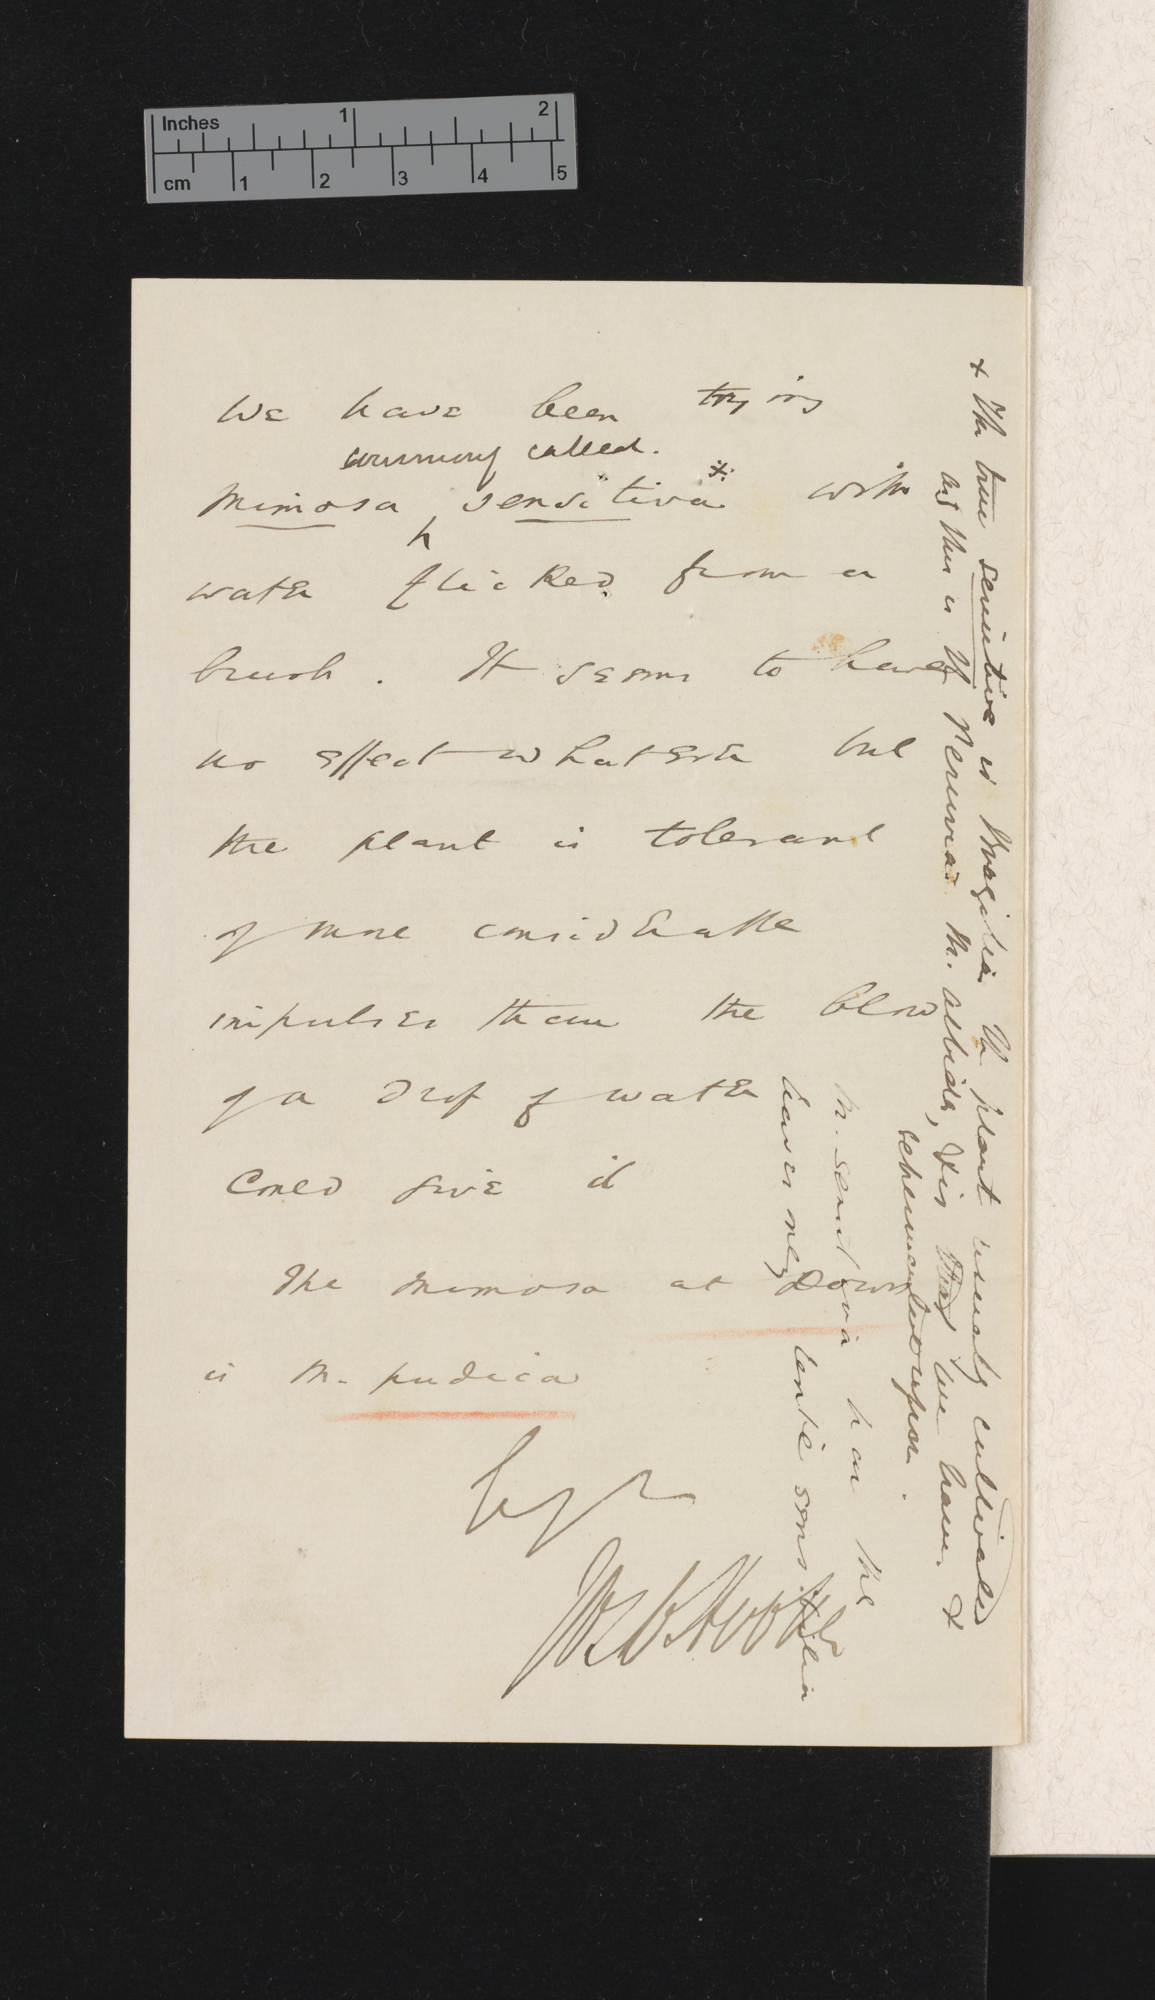 Inches 1 2
cm 1 2 3 4 5
We have been trying
commonly called.
Mimosa sensitiva * with
water flicked from a
brush. It seems to have
no effect whatever but
the plant is tolerant
of more considerable
impulses than the blow
of a drop of water
could give it
The Mimosa at Down
is M. pudica
Jos D Hooker
* The true sensitiva is Brazilian the plant usually cultivated
as this is Peruvian M. albida, & is what we have. &
M. sensitiva has the
leaves